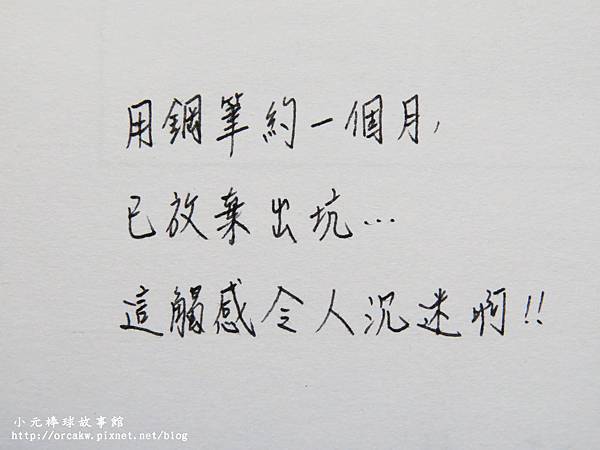 用鋼筆約一個月,
已放棄出坑…
這觸感令人沉迷啊!!
小元棒球故事館
http://orcakw.pixnet.net/blog